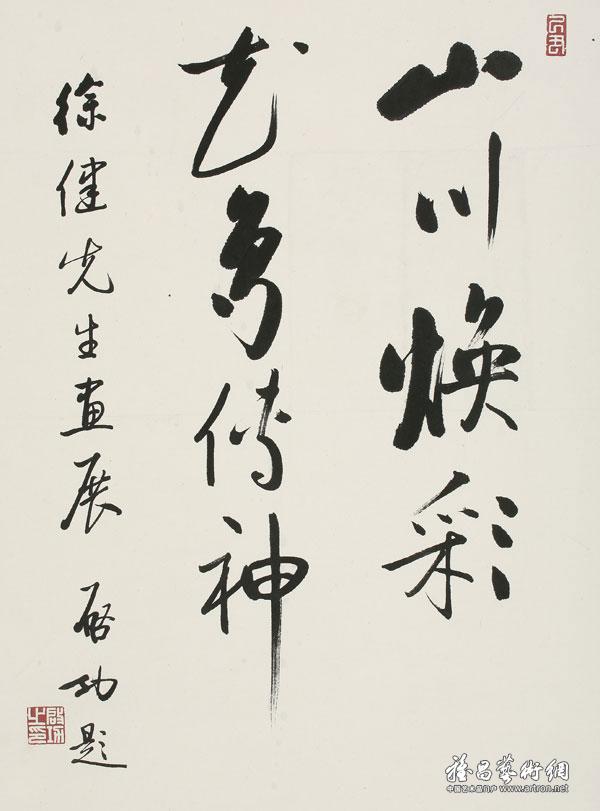 山川焕彩
花鸟传神
徐健先生画展 启功题
啟功之印
雅昌藝術網
中国艺术品门户 www.artron.net